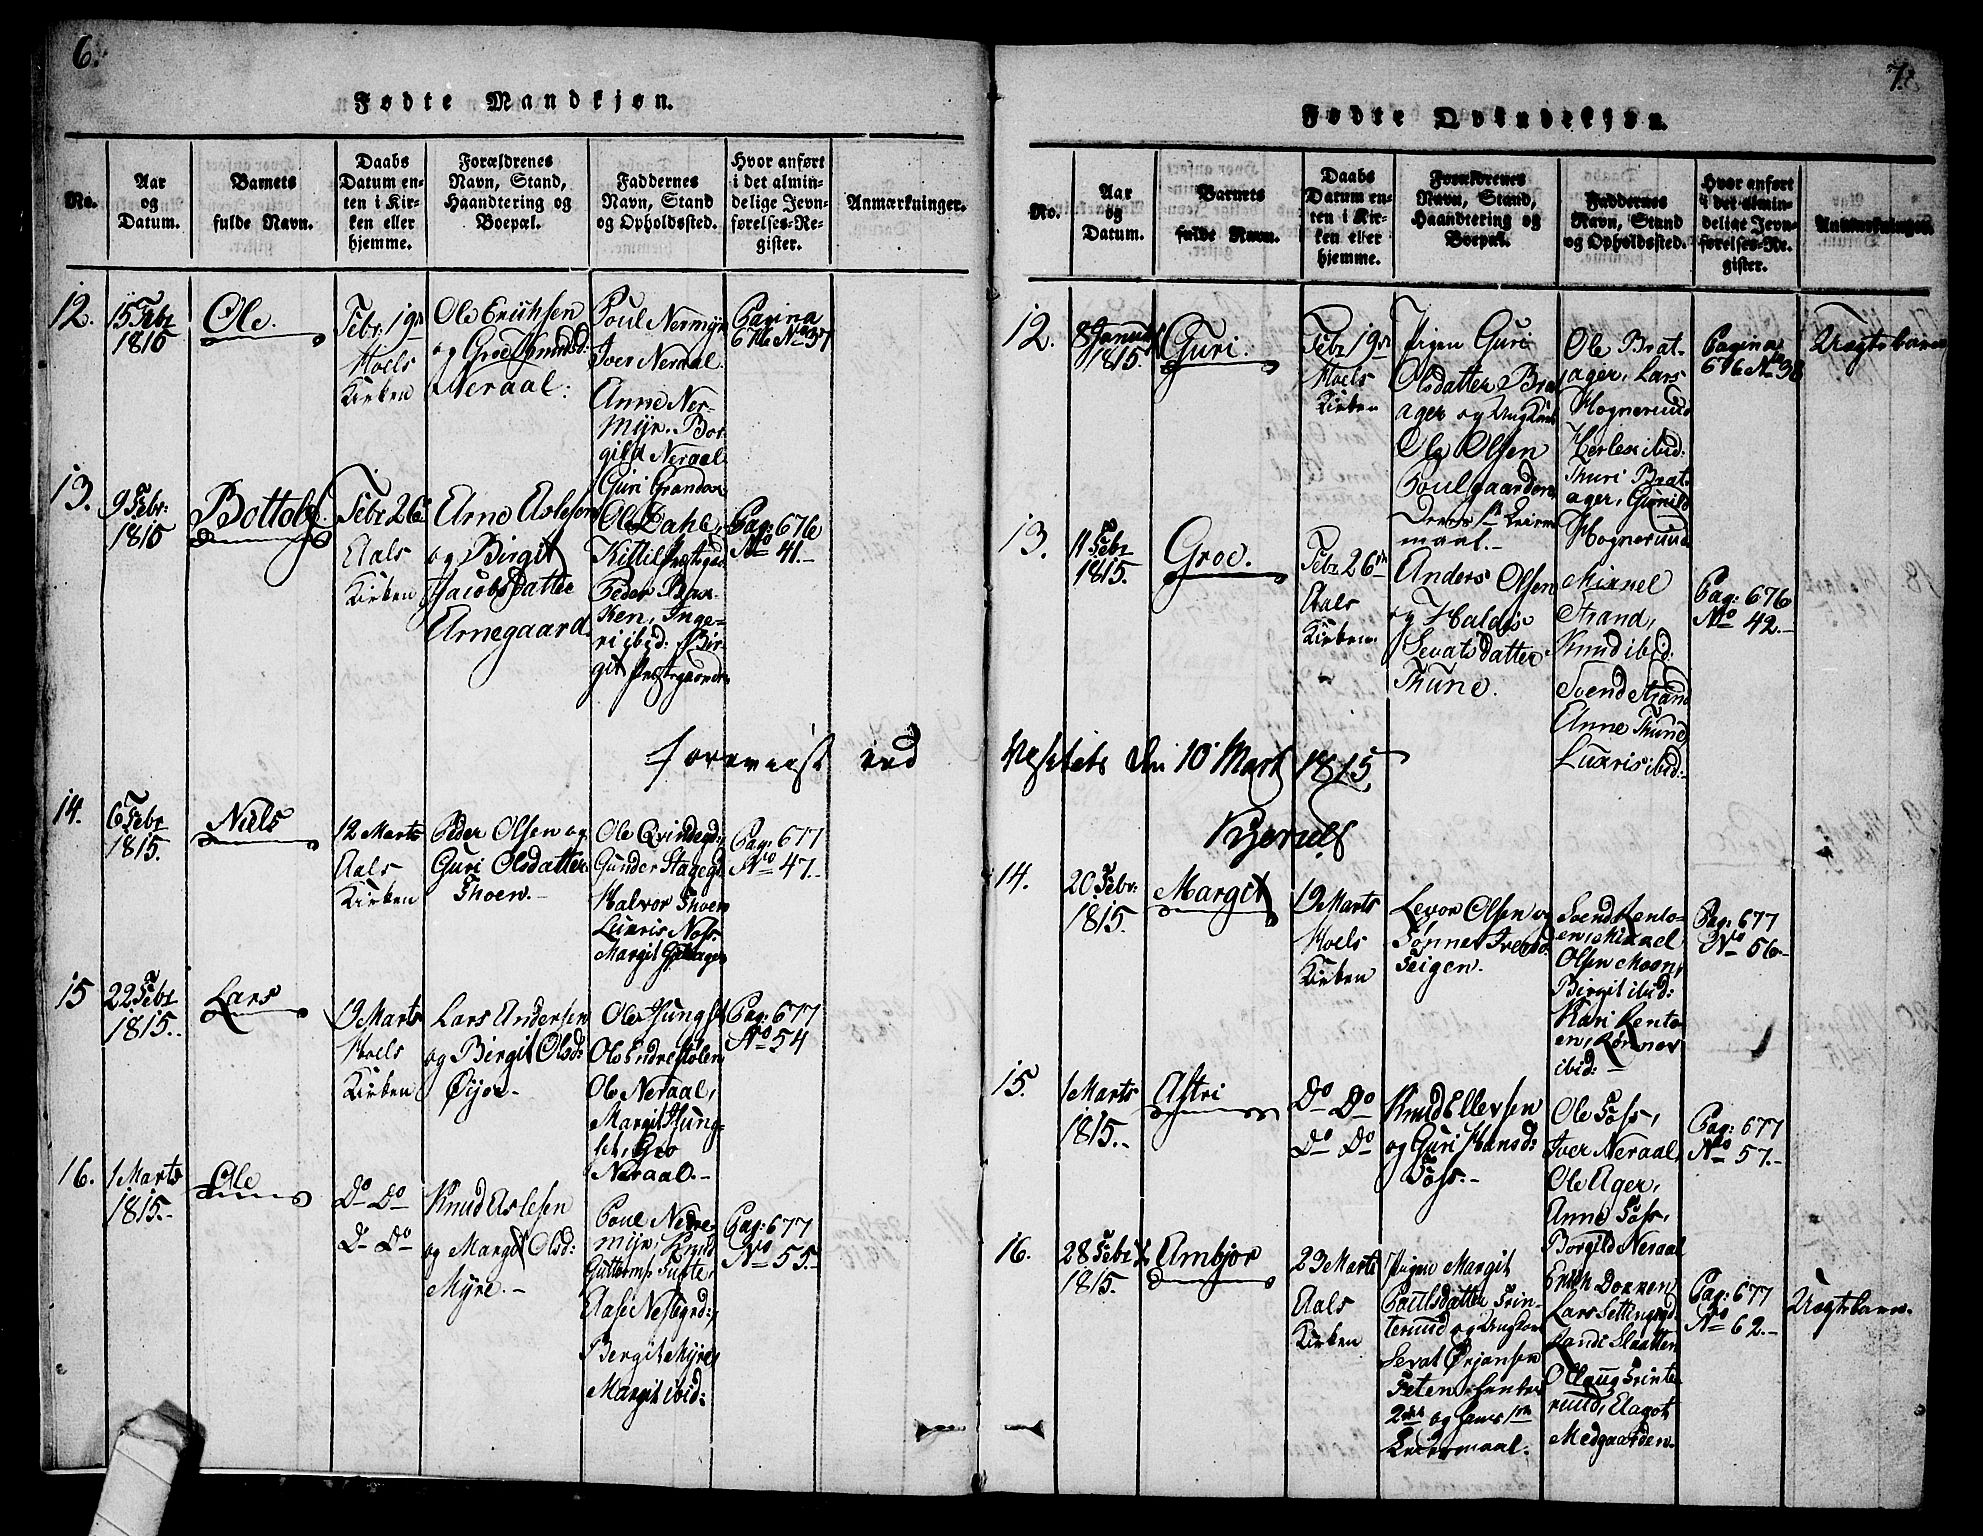 6.
Fødte Mandkjøn.
No.
Aar
og
Datum.
Barnets
fulde Navn.
Daabs
Datum en-
ten i Kir-
ken eller
hjemme.
Forældrenes
Navn, Stand,
Haandtering og
Boepæl.
Faddernes
Navn, Stand
og Opholdssted.
Hvor anført
i det almin-
delige Jevn-
førelses-Re-
gister.
Anmærkninger.
12.
15 Febr
1815
Ole.
Febr 19de
Hoels
Kirken
Ole Erichsen
og Groe
Neraal.
Poul Nermyr
Iver Neraal
Anne Ner-
myr. Bor-
gild Neraal
Pagina
676 No 37
13.
9 Febr:
1815
Bottolf.
Febr 26
Aals
Kirken
Arne Aslesen
og Birgit
Jacobsdatter
Arnegaard
Guri Grandon
Ole Dahl,
Kittil
Peder
ken, Inge-
ri ibid: Bir-
git
Pag: 676
No 41.-
forevist ved
14.
6 Febr
1815.
Niels
12 Marts
Aals
Kirken
Peder Olsen og
Guri Olsdatter
Thoen.-
Ole Qvindegd:
Gunder
Halvor Thoen
Leuvris Noss
Margit
Pag: 677
No 47.-
15
22 Febr
1815.-
Lars
19 Marts
Hoels
Kirken
Lars Andersen
og Birgit Olsd:
Øijoe-
Ole
Ole Endrestolen
Ole Neraal,
Margit
Gro
Neraal.-
Pag: 677
No 54
16.
1 Marts
1815.-
Ole
Do Do
Do Do
Knud Aslesen
og Margit Olsd:
Myre.-
Poul Nedre
myr, Knud
Guttorms Tufte,
Aase Nesegrd:
Bergit Myre
Margit ibid:
Pag: 677
No 55.-
7.
Fødte Qvindekjøn.
No.
Aar
og
Datum.
Barnets
fulde Navn.
Daabs
Datum en-
ten i Kir-
ken eller
hjemme.
Forældrenes
Navn, Stand,
Haandtering og
Boepæl.
Faddernes
Navn, Stand
og Opholdssted.
Hvor anført
i det almin-
delige Jevn-
førelses-Re-
gister.
Anmærkninger.
12.
8 Januar
1815.
Guri.
Febr 19de
Hoels
Kirken
Pigen Guri
Olsdatter Brat-
ager og Ungkarl
Ole Olsen
Poulgaarden
Deres 1te Leier-
maal.-
Ole Brat-
ager, Lars
Hognerud
Herlex ibid:
Thuri Brat-
ager, Gunild
Hognerud
Pagina
676 No 38
Uægte barn
13.
11 Febr
1815.
Groe.
Febr 26de
Aals
Kirken
Anders Olsen
og Haldis
Sevatsdatter
Thune.
Mikkel
Strand,
Knud ibid:
Svend Strand
Anne Thune,
Luvris ibid:
Pag: 676
No 42.-
Visitats den 10 Mart 1815
14.
20 Febr:
1815.
Margit
19 Marts
Hoels
Kirken
Levor Olsen og
Tønner Iversd
Teigen.
Svend Rento-
en, Mikkel
Olsen Moen,
Birgit ibid:
Kari Rento-
en, Rønnev
ibid:-
Pag: 677
No 56-
15.
1 Marts
1815.-
Astri
Do Do
Do Do
Knud Ellevsen
og Guri Hansd:
Foss.-
Ole Foss,
Iver Neraal,
Ole Ager,
Anne Foss,
Borgild Neraal
Pag: 677
No 57.-
16.
28 Febr
1815.
Ambjør
23 Marts
Aals
Kirken
Pigen Margit
Poulsdatter Trin-
terud og Ungkarl
Sevat Ørjansen
Feten hendes
2det og hans 1te
Leiermaal.
Erich Dokken
Lars
Randi Slaatten
Ollaug Trinte
ruud, Aagot
Medgaarden.
Pag: 677
No 62.-
Uægte barn.